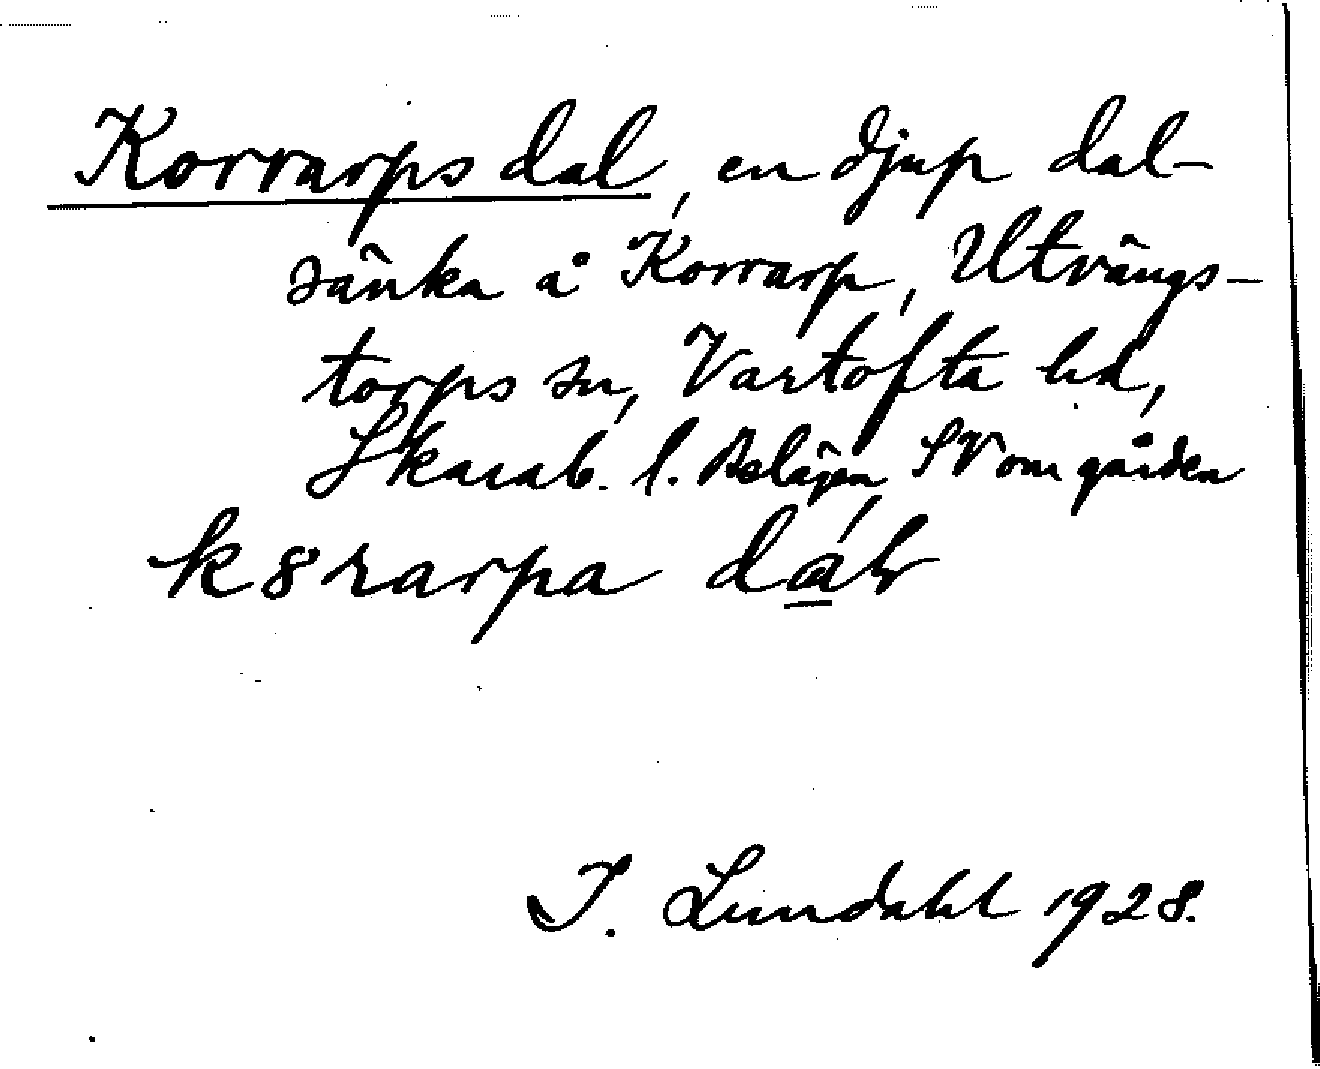 Korrarps dal, en djup dal-
sänka å Korrarp, Utvängs-
torps sn, Vartofta hd,
Skarab. l. Belägen SV om gården
k8rarpa dáb
I. Lundahl 1928.